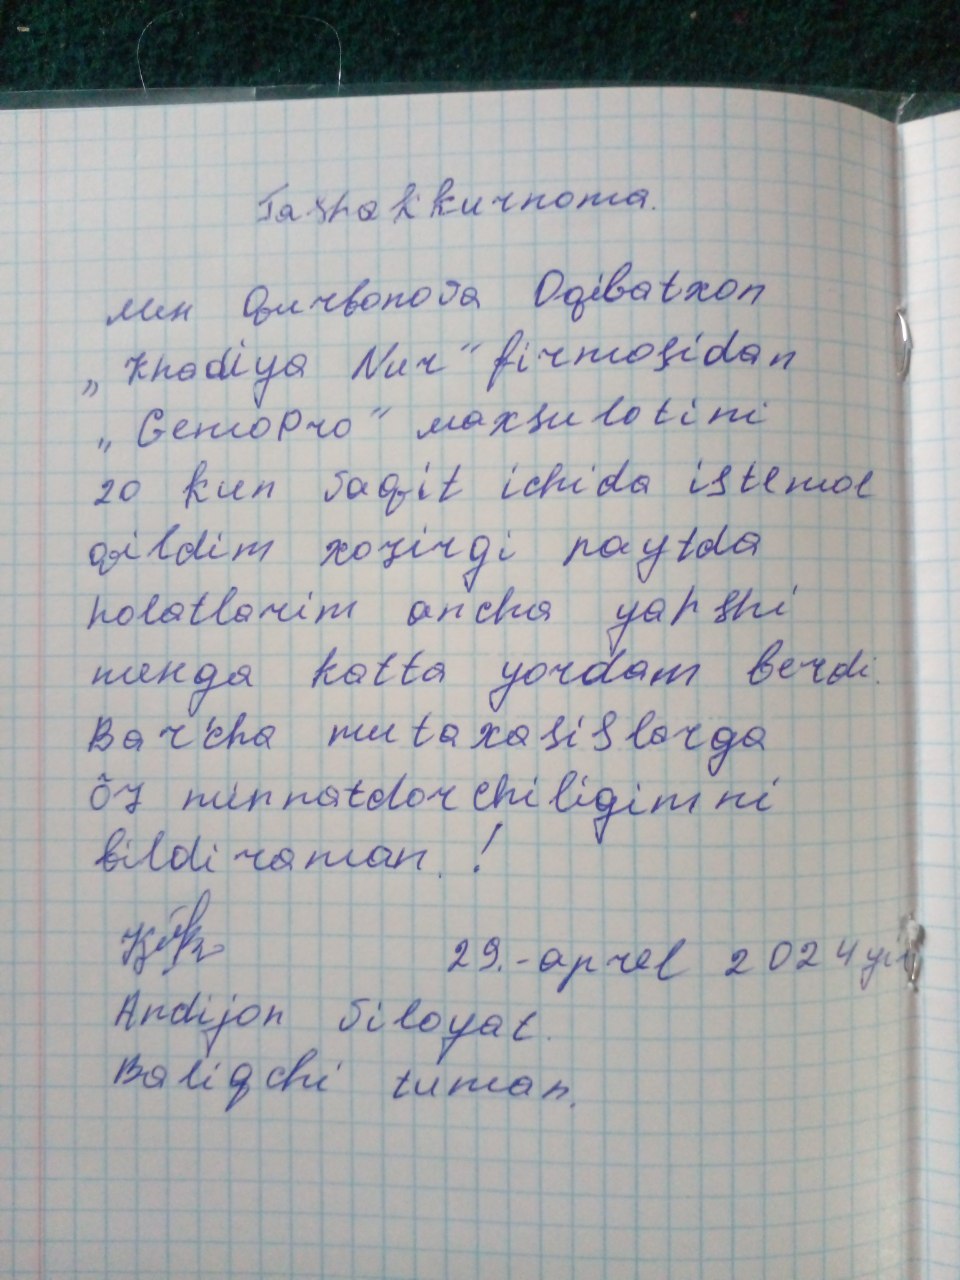 Tashakkurnoma.
Men Qurbonova Oqibatxon
„Khadiya Nur“ firmasidan
„GemoPro“ maxsulotini
20 kun vaqit ichida istemol
qildim xozirgi paytda
holatlarim ancha yahshi
menga katta yordam berdi.
Barcha mutaxasislarga
õz minnatdorchiligimni
bildiraman. !
29.-aprel 2024 yil
Andijon viloyat.
Baliqchi tuman.